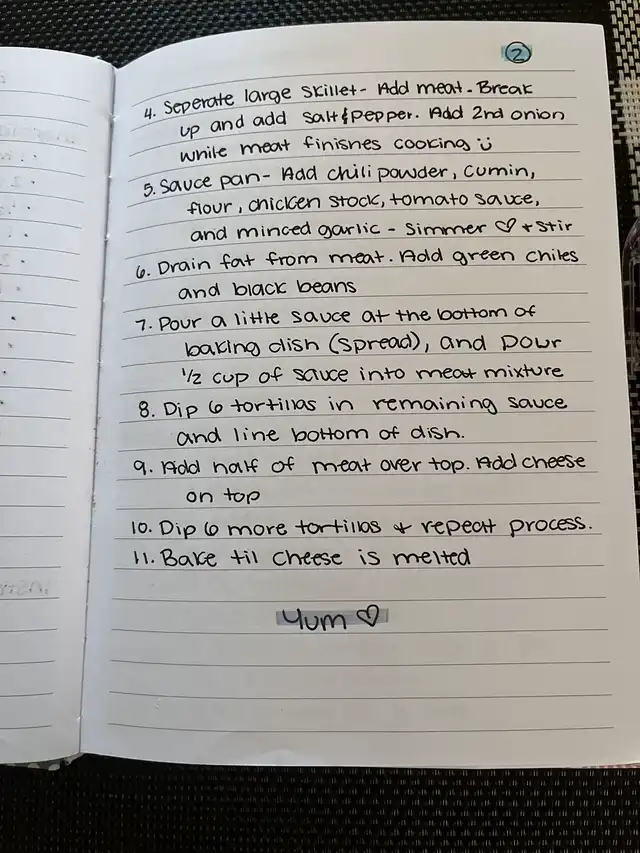 2
4. Seperate large skillet- Add meat. Break
up and add salt & pepper. Add 2nd onion
while meat finishes cooking ü
5. Sauce pan- Add chili powder, cumin,
flour, chicken stock, tomato sauce,
and minced garlic - simmer ♡ + stir
6. Drain fat from meat. Add green chiles
and black beans
7. Pour a little sauce at the bottom of
baking dish (spread), and pour
1/2 cup of sauce into meat mixture
8. Dip 6 tortillas in remaining sauce
and line bottom of dish.
9. Add half of meat over top. Add cheese
on top
10. Dip 6 more tortillas + repeat process.
11. Bake til cheese is melted
Yum ♡